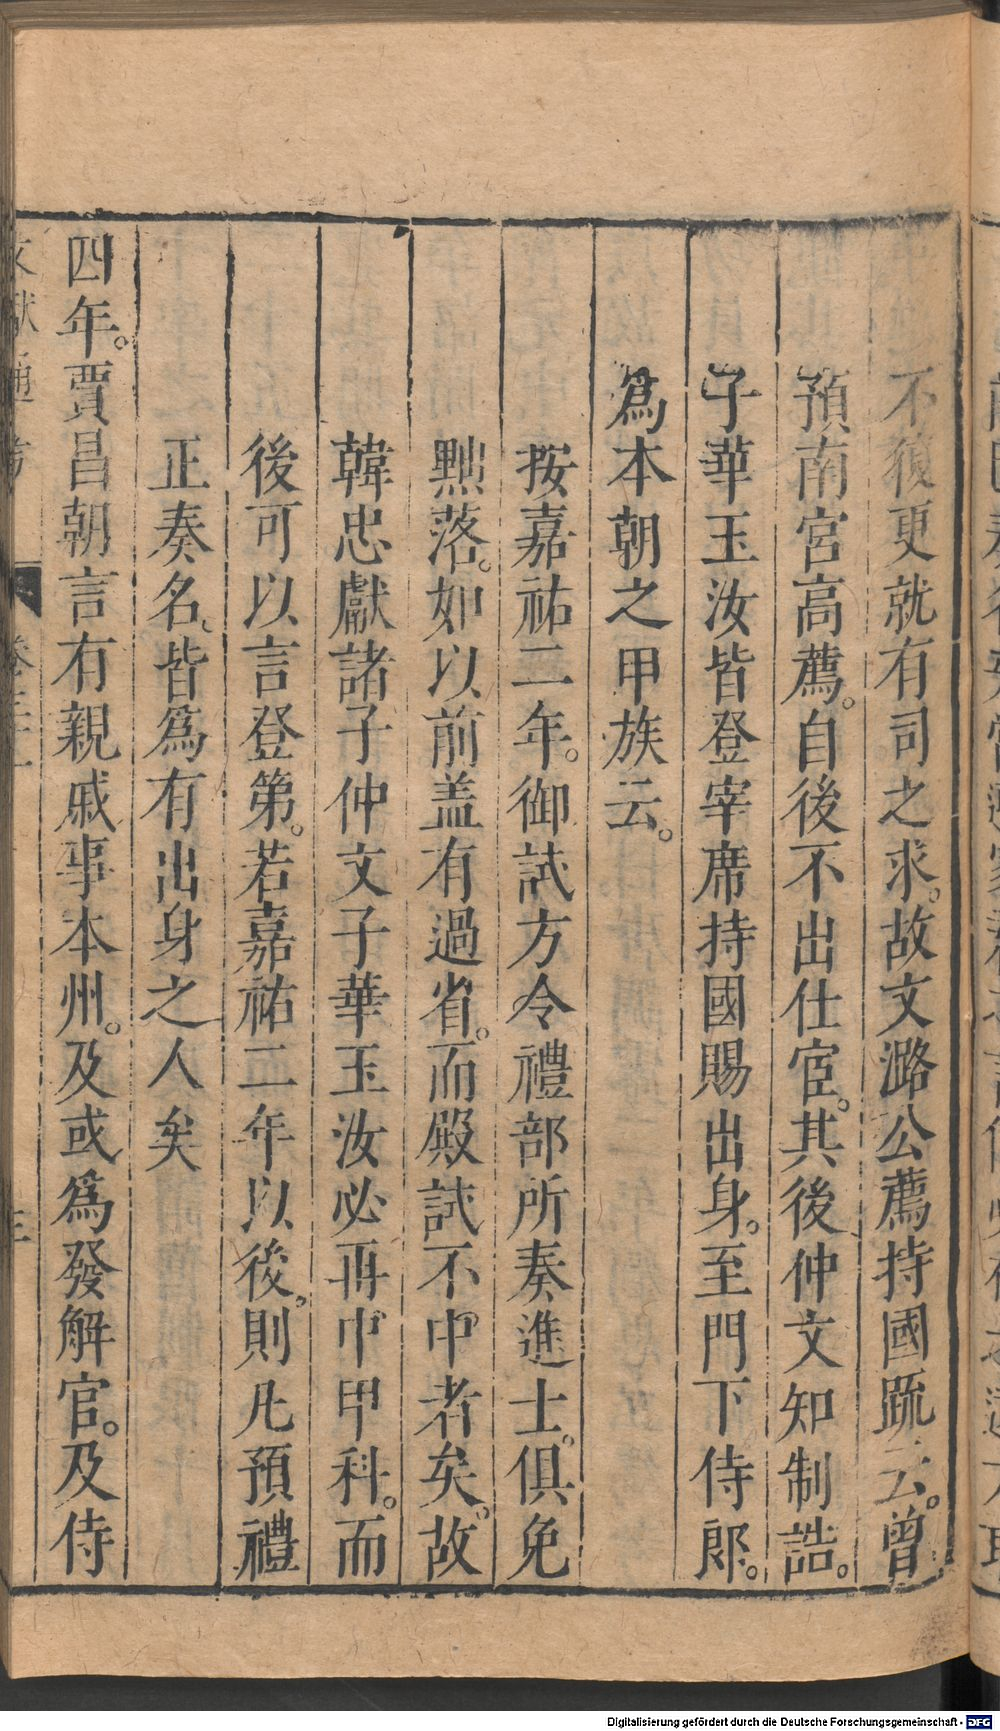 不復更就有司之求。故文潞公薦持國䟽云。曾
預南宮高薦。自後不出仕宦。其後仲文知制誥。
子華玉汝皆登宰席持國賜出身。至門下侍郎。
爲本朝之甲族云。
按嘉祐二年。御試方令禮部所奏進士。俱免
黜落。如以前盖有過省。而殿試不中者矣。故
韓忠獻諸子仲文子華玉汝必再中甲科。而
後可以言登第。若嘉祐二年以後。則凡預禮
正奏名、皆爲有出身之人矣
四年。賈昌朝言有親戚事本州。及或爲發解官。及侍
文獻通考
Digitalisierung gefördert durch die Deutsche Forschungsgemeinschaft - DFG